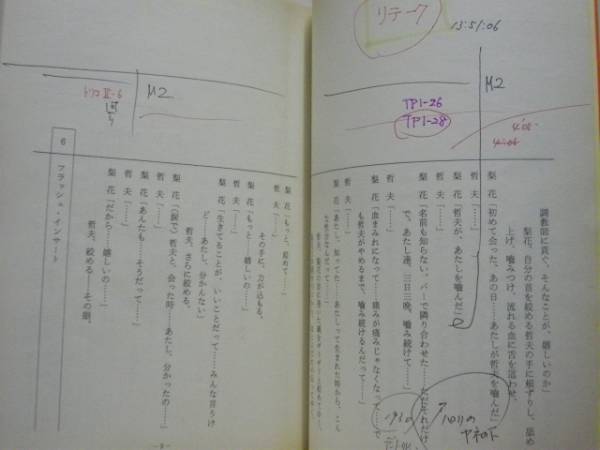 リテーク
13:51:06
M2
TP1-26
TP1-28
4:05
4:06
調教師に貢ぐ、そんなことが、嬉しいのか」
梨花、自分の首を絞める哲夫の手に頬ずりし、舐め
上げ、噛みつけ、流れる血に舌を這わせ、
梨花「初めて会った、あの日……あたしが哲夫を噛んだ」
哲夫「……」
梨花「哲夫が、あたしを噛んだ」
哲夫「……」
梨花「名前も知らない、バーで隣り合わせた……ただそれだけ
で、あたし達、三日三晩、噛み続けて……」
哲夫「……」
梨花「血まみれになって……痛みが痛みじゃなくなって……で
も哲夫がやめるまで、噛み続けるんだって……」
哲夫「……」
梨花「あたし、知ってた……あたしって生まれた時から、こん
な性分なんだって……」
ハロリの
ヤネの下
M2
トリコⅡ-6
梨花「もっと、絞めて……」
哲夫「……」
その手に、力が込もる。
梨花「もっと……嬉しいの……」
哲夫「……」
梨花「生きてることが、いいことだって……みんな言うけ
ど……あたし、分かんない」
哲夫、さらに絞める。
梨花「(涙で)哲夫と、会った時……あたし、分かったの……」
哲夫「……」
梨花「あんたも……そうだって……」
哲夫「……」
梨花「だから……嬉しいの……」
哲夫、絞める……その顔。
6 フラッシュ・インサート